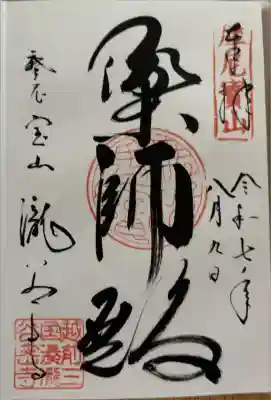 奉拝
令和七年
八月九日
薬師殿
摩尼宝山
瀧谷寺
越前三
国湊瀧
谷寺